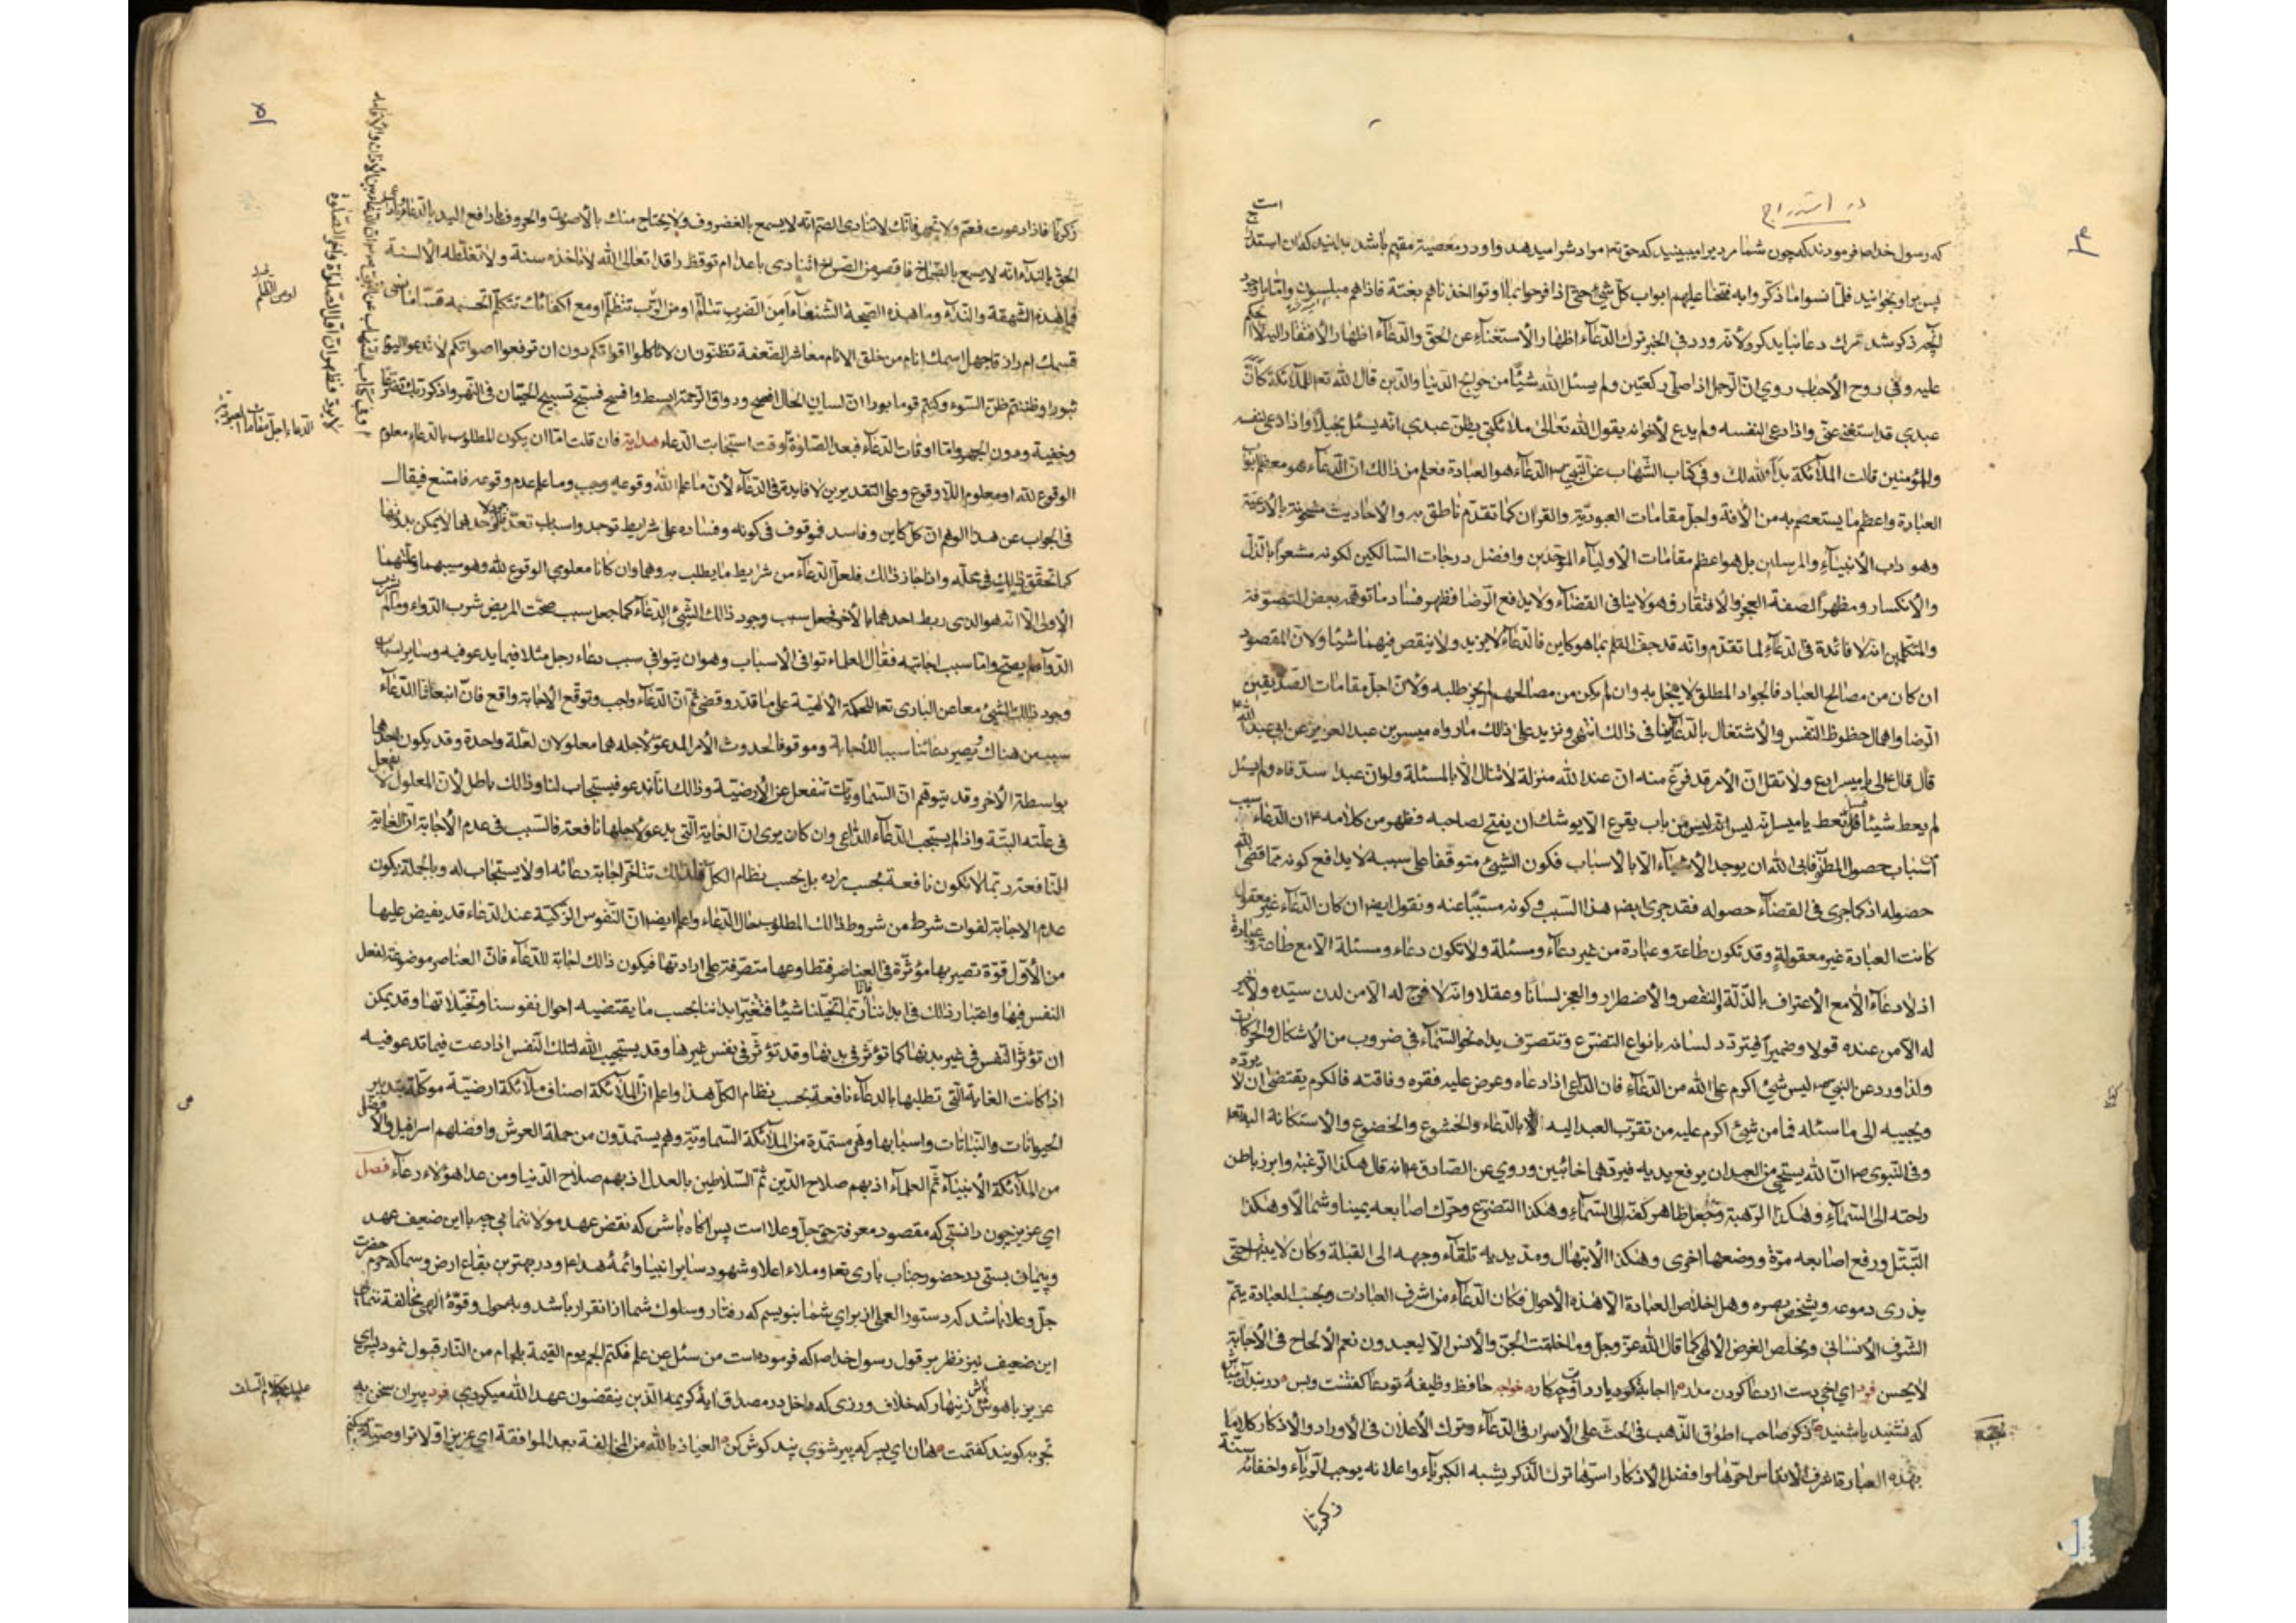 در استدراج
است
که رسول خدا ص فرمودند که چون شما مرد یرا میبینید که حق تع مواد شرا میدهد و او در معصیة مقیم باشد بدانید که ان استد
پس برا و بخوانید فلما نسوا ما ذکروا به فتحنا علیهم ابواب کل شیء حتی اذا فرحوا بما اوتوا اخذناهم بغتة فاذاهم مبلسون و اما با وجود
آنچه ذکر شد ترک دعا نباید کرد لانه ورد فی الخبر ترک الدعاء اظهار الاستغناء عن الحق والدعاء اظهار الافتقار الیه
علیه وفی روح الأحباب روی ان الرجل اذا صلی رکعتین ولم یسئل الله شیئا من حوایج الدنیا والدین قال الله تعم للملائکة کان
عبدی قد استغنی عنی واذا دعی لنفسه ولم یدع لأخوانه یقول الله تعالی ملائکتی یظن عبدی انه یسئل بخیلا واذا دعی لنفسه
وللمؤمنین قالت الملائکة بدأ الله لک وفی کتاب الشهاب عن النبی ص الدعاء هو العبادة فعلم من ذالک ان الدعاء هو معظم
العبادة واعظم ما یستعصم به من الافة واجل مقامات العبودیة والقران کما تقدم ناطق به والأحادیث مشحونة بالأدعیة
وهو داب الأنبیاء والمرسلین بل هو اعظم مقامات الأولیاء الموحدین وافضل درجات السالکین لکونه مشعرا بالذل
والأنکسار ومظهرا لصفة العجز والافتقار فهو لا ینافی القضاء ولا یدفع الرضا فظهر فساد ما توهمه بعض المتصوفة
والمتکلمین انه لا فائدة فی الدعاء لما تقدم وانه قد جف القلم بما هو کاین فالدعاء لا یزید ولا ینقص فیهما شیئا ولان المقصود
ان کان من مصالح العباد فالجواد المطلق لا یبخل به وان لم یکن من مصالحهم لم یجز طلبه ولان اجل مقامات الصدیقین
الرضا واهمال حظوظ النفس والأشتغال بالدعاء ینافی ذالک انتهی ونزید علی ذالک ما رواه میسر بن عبد العزیز عن ابی عبد الله
قال قال لی یا میسر ادع ولا تقل ان الأمر قد فرغ منه ان عند الله منزلة لا تنال الا بالمسئلة ولو ان عبدا سد فاه ولم یسئل
لم یعط شیئا فسل تعط یا میسر انه لیس من باب یقرع الا یوشک ان یفتح لصاحبه فظهر من کلامه ع ان الدعاء سبب
اسباب حصول المطلوب فابی الله ان یوجد الأشیاء الا بالأسباب فکون الشیء متوقفا علی سببه لا یدافع کونه مما قضی الله
حصوله اذ کما جری فی القضاء حصوله فقد جری ایضا هذا السبب وکونه مسببا عنه ونقول ایضا ان کان الدعاء غیر معقول
کانت العبادة غیر معقولة وقد تکون طاعة وعبادة من غیر دعاء ومسئلة ولا تکون دعاء ومسئلة الا مع طاعة وعبادة
اذ لا دعاء الا مع الأعتراف بالذلة والنقص والأضطرار والعجز لسانا وعقلا وانه لا فرج له الا من لدن سیده ولا خیر
له الا من عنده قولا وضمیرا فیتردد لسانه بانواع التضرع وتتصرف یداه نحو السماء فی ضروب من الأشکال والحرکات
ولذا ورد عن النبی ص لیس شیء اکرم علی الله من الدعاء فان الداعی اذا دعاه وعرض علیه فقره وفاقته فالکرم یقتضی ان لا یرده
ویجیبه الی ما سئله فما من شیء اکرم علیه من تقرب العبد الیه بالدعاء والخشوع والخضوع والاستکانة الیه تعم
وفی النبوی ص ان الله یستحیی من العبد ان یرفع یدیه فیردهما خائبین وروی عن الصادق ع انه قال هکذا الرغبة وابرز باطن
راحته الی السماء وهکذا الرهبة وجعل ظاهر کفه الی السماء وهکذا التضرع وحرک اصابعه یمینا وشمالا وهکذا
التبتل ورفع اصابعه مرة ووضعها اخری وهکذا الابتهال ومد یدیه تلقاء وجهه الی القبلة وکان لا یبتهل حتی
یذری دموعه ویشخص بصره وهل اخلاص العبادة الا هذه الأحوال فکان الدعاء من اشرف العبادات وبحسب العبادة یتم
الشرف الأنسانی ویخلص الغرض الألهی کما قال الله عز وجل وما خلقت الجن والأنس الا لیعبدون نعم الألحاح فی الأجابة
لا یحسن فرد ای اخی دست از دعا کردن مدار با اجابت کرد یا رد اوت چکار خواجه حافظ وظیفهٔ تو دعا گفتنست وبس در بند آن مباش
که نشنید یا شنید ذکر صاحب اطواق الذهب فی الحث علی الأسرار فی الدعاء وترک الأعلان فی الأوراد والأذکار کلاما
بهذه العبارة اغرف الأنفاس احرها وافضل الأذکار اسرها ترک الذکر یشبه الکبریاء واعلانه یوجب الریاء واخفائه سنة
زکریا
۵
زکریا فاذا دعوت فعم ولا تجهر فانک لا تنادی الصم انه لا یسمع بالغضروف ولا یحتاج منک بالأصوات والحروف یا رافع الید بالدعاء
الحق بالنداء انه لا یسمع بالصماخ فاقصر من الصراخ اتنادی باعدام توقظ راقدا تعالی الله لا تاخذه سنة ولا تغلطه الألسنة
فما هذه الشهقة والنداء وما هذه الصیحة الشنعاء أمن الضرب تتألم او من الرب تتظلم او مع اکفائک تتکلم اتحسبه
ثبورا وظننتم ظن السوء وکنتم قوما بورا ان لسان الحال افصح ورواق الرحمة ابسط وافسح فسبح تسبیح الحیتان فی النهر واذکر ربک تضرعا
وخفیة ودون الجهر واما اوقات الدعاء فبعد الصلوة وقت استجابت الدعاء هدایة فان قلت اما ان یکون المطلوب بالدعاء معلوم
الوقوع لله او معلوم اللا وقوع وعلی التقدیرین لا فایدة فی الدعاء لأن ما علم الله وقوعه وجب وما علم عدم وقوعه فامتنع فیقال
فی الجواب عن هذا الوهم ان کل کاین وفاسد فموقوف فی کونه وفساده علی شرایط توجد واسباب تعد لا یمکن بدونها
کما تحقق ذالک فی محله واذا جاز ذالک فلعل الدعاء من شرایط ما یطلب به وهما وان کانا معلومی الوقوع لله وهو سببهما وعلتهما
الأولی الا انه هو الذی ربط احدهما بالأخر فجعل سبب وجود ذالک الشیء الدعاء کما جعل سبب صحت المریض شرب الدواء وما لم یشرب
الدواء لم یصح واما سبب اجابته فقال العلماء توافی الأسباب وهو ان یتوافی سبب دعاء رجل مثلا فیما یدعو فیه وسایر اسباب
وجود ذالک الشیء معا عن الباری تعم للحکمة الألهیة علی ما قدر وقضی ثم ان الدعاء واجب وتوقع الأجابة واقع فان انبعاثنا للدعاء
سببه من هناک ویصیر دعائنا سببا للأجابة وموقوفا لحدوث الأمر المدعو لأجله هما معلولان لعلة واحدة وقد یکون احدهما
بواسطة الأخر وقد یتوهم ان السماویات تنفعل عن الأرضیة وذالک انا ندعو فیستجاب لنا وذالک باطل لأن المعلول لا یفعل
فی علته البتة واذا لم یستجب الدعاء الداعی وان کان یری ان الغایة التی یدعو لأجلها نافعة فالسبب فی عدم الأجابة ان الغایة
النافعة ربما لا تکون نافعة بحسب مراده بل بحسب نظام الکل فلذلک تتاخر اجابة دعائه او لا یستجاب له وبالجملة یکون
عدم الاجابة لفوات شرط من شروط ذالک المطلوب حال الدعاء واعلم ایضا ان النفوس الزکیة عند الدعاء قد یفیض علیها
من الأول قوة تصیر بها مؤثرة فی العناصر فتطاوعها متصرفة علی ارادتها فیکون ذالک اجابة للدعاء فان العناصر موضوعة لفعل
النفس فیها واعتبار ذالک فی ابداننا فانا ربما تخیلنا شیئا فتغیر ابداننا بحسب ما یقتضیه احوال نفوسنا وتخیلاتها وقد یمکن
ان تؤثر النفس فی غیر بدنها کما تؤثر فی بدنها وقد تؤثر فی نفس غیرها وقد یستجیب الله لتلک النفس اذا دعت فیما تدعو فیه
اذا کانت الغایة التی تطلبها بالدعاء نافعة بحسب نظام الکل هذا واعلم ان الملائکة اصناف ملائکة ارضیة موکلة بتدبیر
الحیوانات والنباتات واسبابها وهی مستمدة من الملائکة السماویة وهم یستمدون من حملة العرش وافضلهم اسرافیل
من الملائکة الأنبیاء ثم العلماء اذ بهم صلاح الدین ثم السلاطین بالعدل اذ بهم صلاح الدنیا ومن عدا هؤلاء رعاء فصل
ای عزیز چون دانستی که مقصود معرفة حق جل وعلا است پس آکاه باش که نقض عهد مولا ننمایی چه با این ضعیف عهد
وپیمان بستی بحضور جناب باری تعم وملاء اعلا وشهود سایر انبیا وائمهٔ هدا ع ودر بهترین بقاع ارض وسما که حرم حضرت
جل وعلا باشد که دستور العمل از برای شما بنویسم که رفتار وسلوک شما از انقرار باشد وبحول وقوهٔ الهی مخالفة ننمائی
این ضعیف نیز نظر بر قول رسول خدا ص که فرموده است من سئل عن علم فکتم الجم یوم القیمة بلجام من النار قبول نمود پس ای
عزیز با هوش باش زینهار که خلاف ورزی که داخل در مصداق آیهٔ کریمه الذین ینقضون عهد الله میکردی فرد پیران سخن به
تجربه کویند کفتمت هان ای پسر که پیر شوی پند کوش کن العیاذ بالله من المخالفة بعد الموافقة ای عزیز اولا ترا وصیة میکنم
او من الظلم
الدعاء اجل مقامات العبودیة